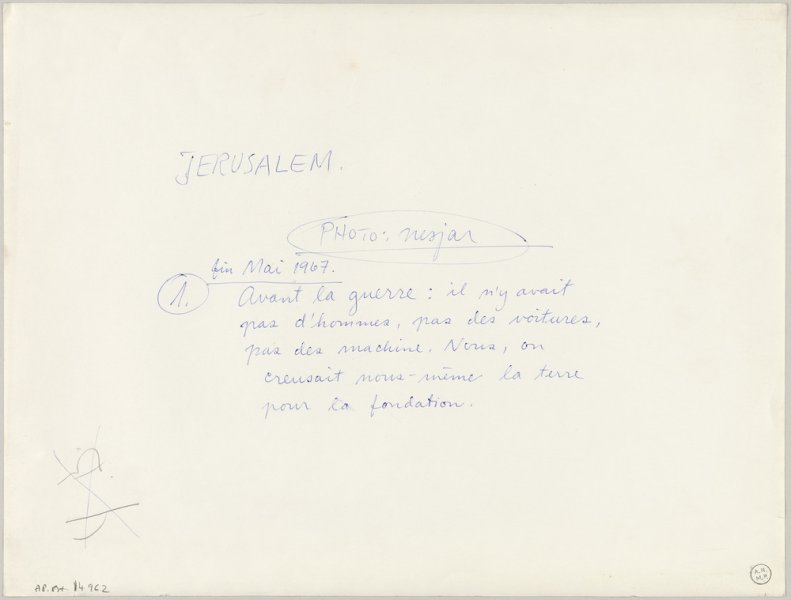 JERUSALEM.
PHOTO: nesjar
fin Mai 1967.
1. Avant la guerre : il n'y avait
pas d'hommes, pas des voitures,
pas des machine. Nous, on
creusait nous-même la terre
pour la fondation.
14962